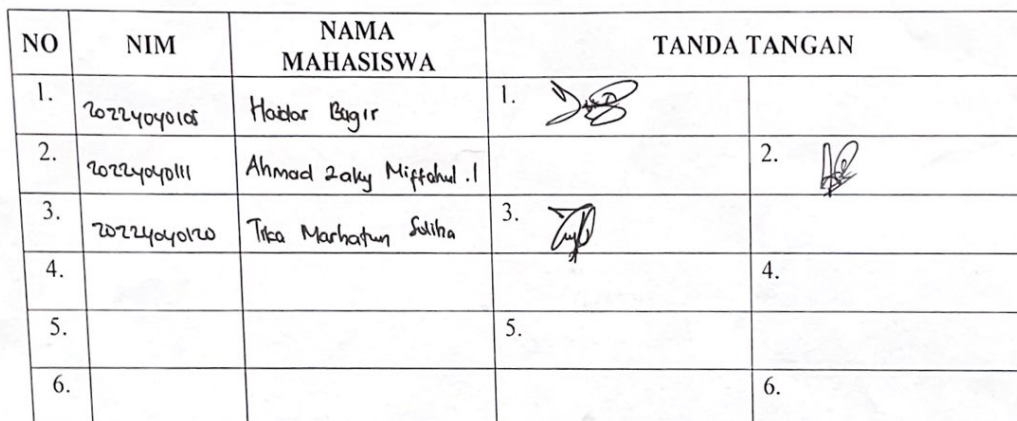 NO NIM NAMA MAHASISWA TANDA TANGAN
1. 20224040105 Haidar Bagir 1.
2. 20224040111 Ahmad Zaky Miftahul .I 2.
3. 20224040120 Tika Marhatun Soliha 3.
4. 4.
5. 5.
6. 6.